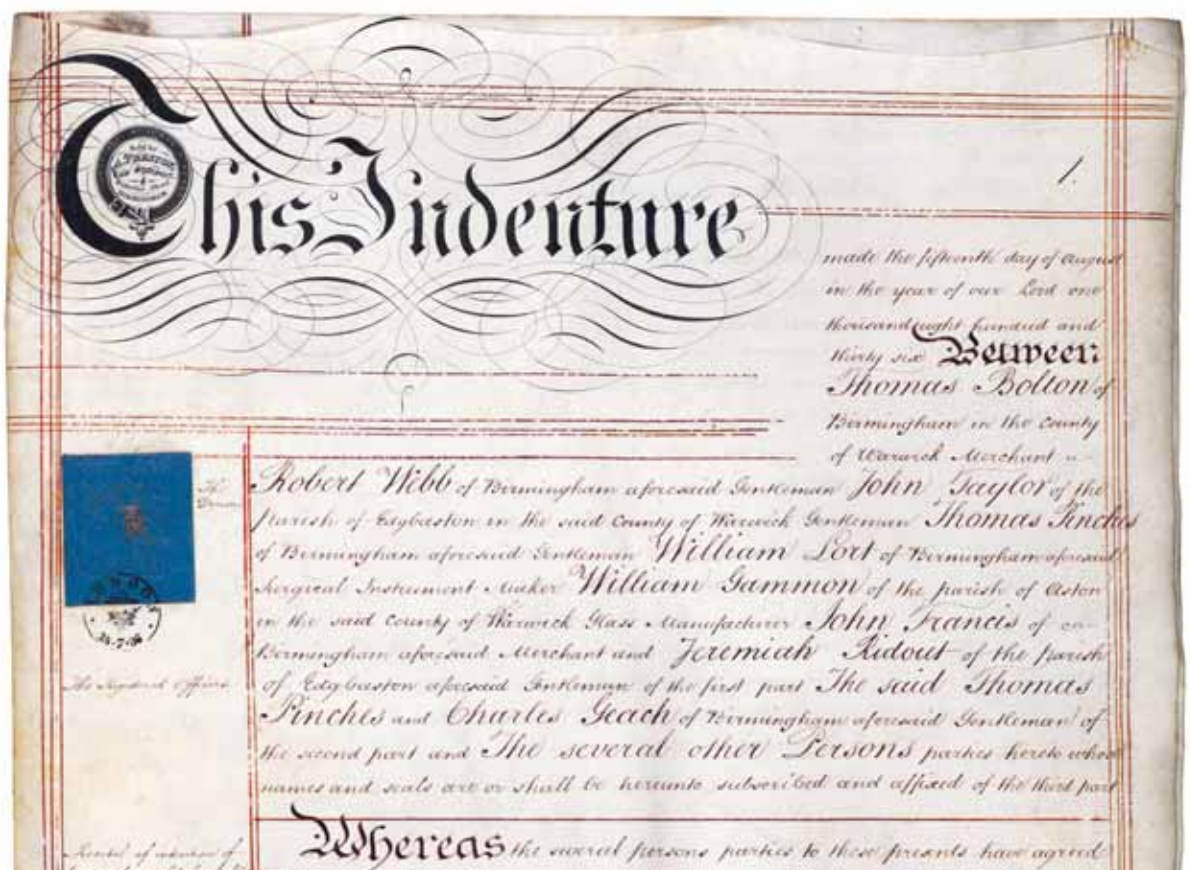 This Indenture
1.
made the fifteenth day of August
in the year of our Lord one
thousand eight hundred and
thirty six Between
Thomas Bolton of
Birmingham in the County
of Warwick Merchant
Robert Webb of Birmingham aforesaid Gentleman John Taylor of the
parish of Edgbaston in the said County of Warwick Gentleman Thomas Pinches
of Birmingham aforesaid Gentleman William Lort of Birmingham aforesaid
Surgical Instrument Maker William Gammon of the parish of Aston
in the said County of Warwick Glass Manufacturer John Francis of
Birmingham aforesaid Merchant and Jeremiah Ridout of the parish
of Edgbaston aforesaid Gentleman of the first part The said Thomas
Pinches and Charles Geach of Birmingham aforesaid Gentleman of
the second part and The several other Persons parties hereto whose
names and seals are or shall be hereunto subscribed and affixed of the third part
Whereas the several persons parties to these presents have agreed